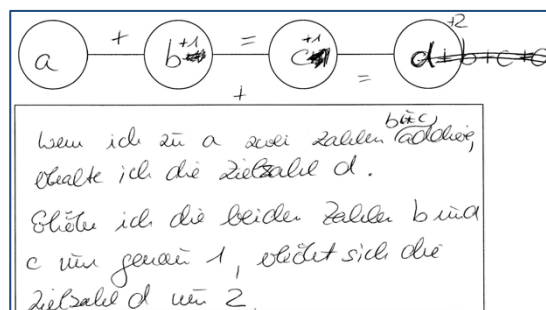 + +1 = +1 +2
a b c d+b+c+d
+ =
Wenn ich zu a zwei Zahlen (b+c) addiere,
erhalte ich die Zielzahl d.
Erhöhe ich die beiden Zahlen b und
c um genau 1, erhöht sich die
Zielzahl d um 2.